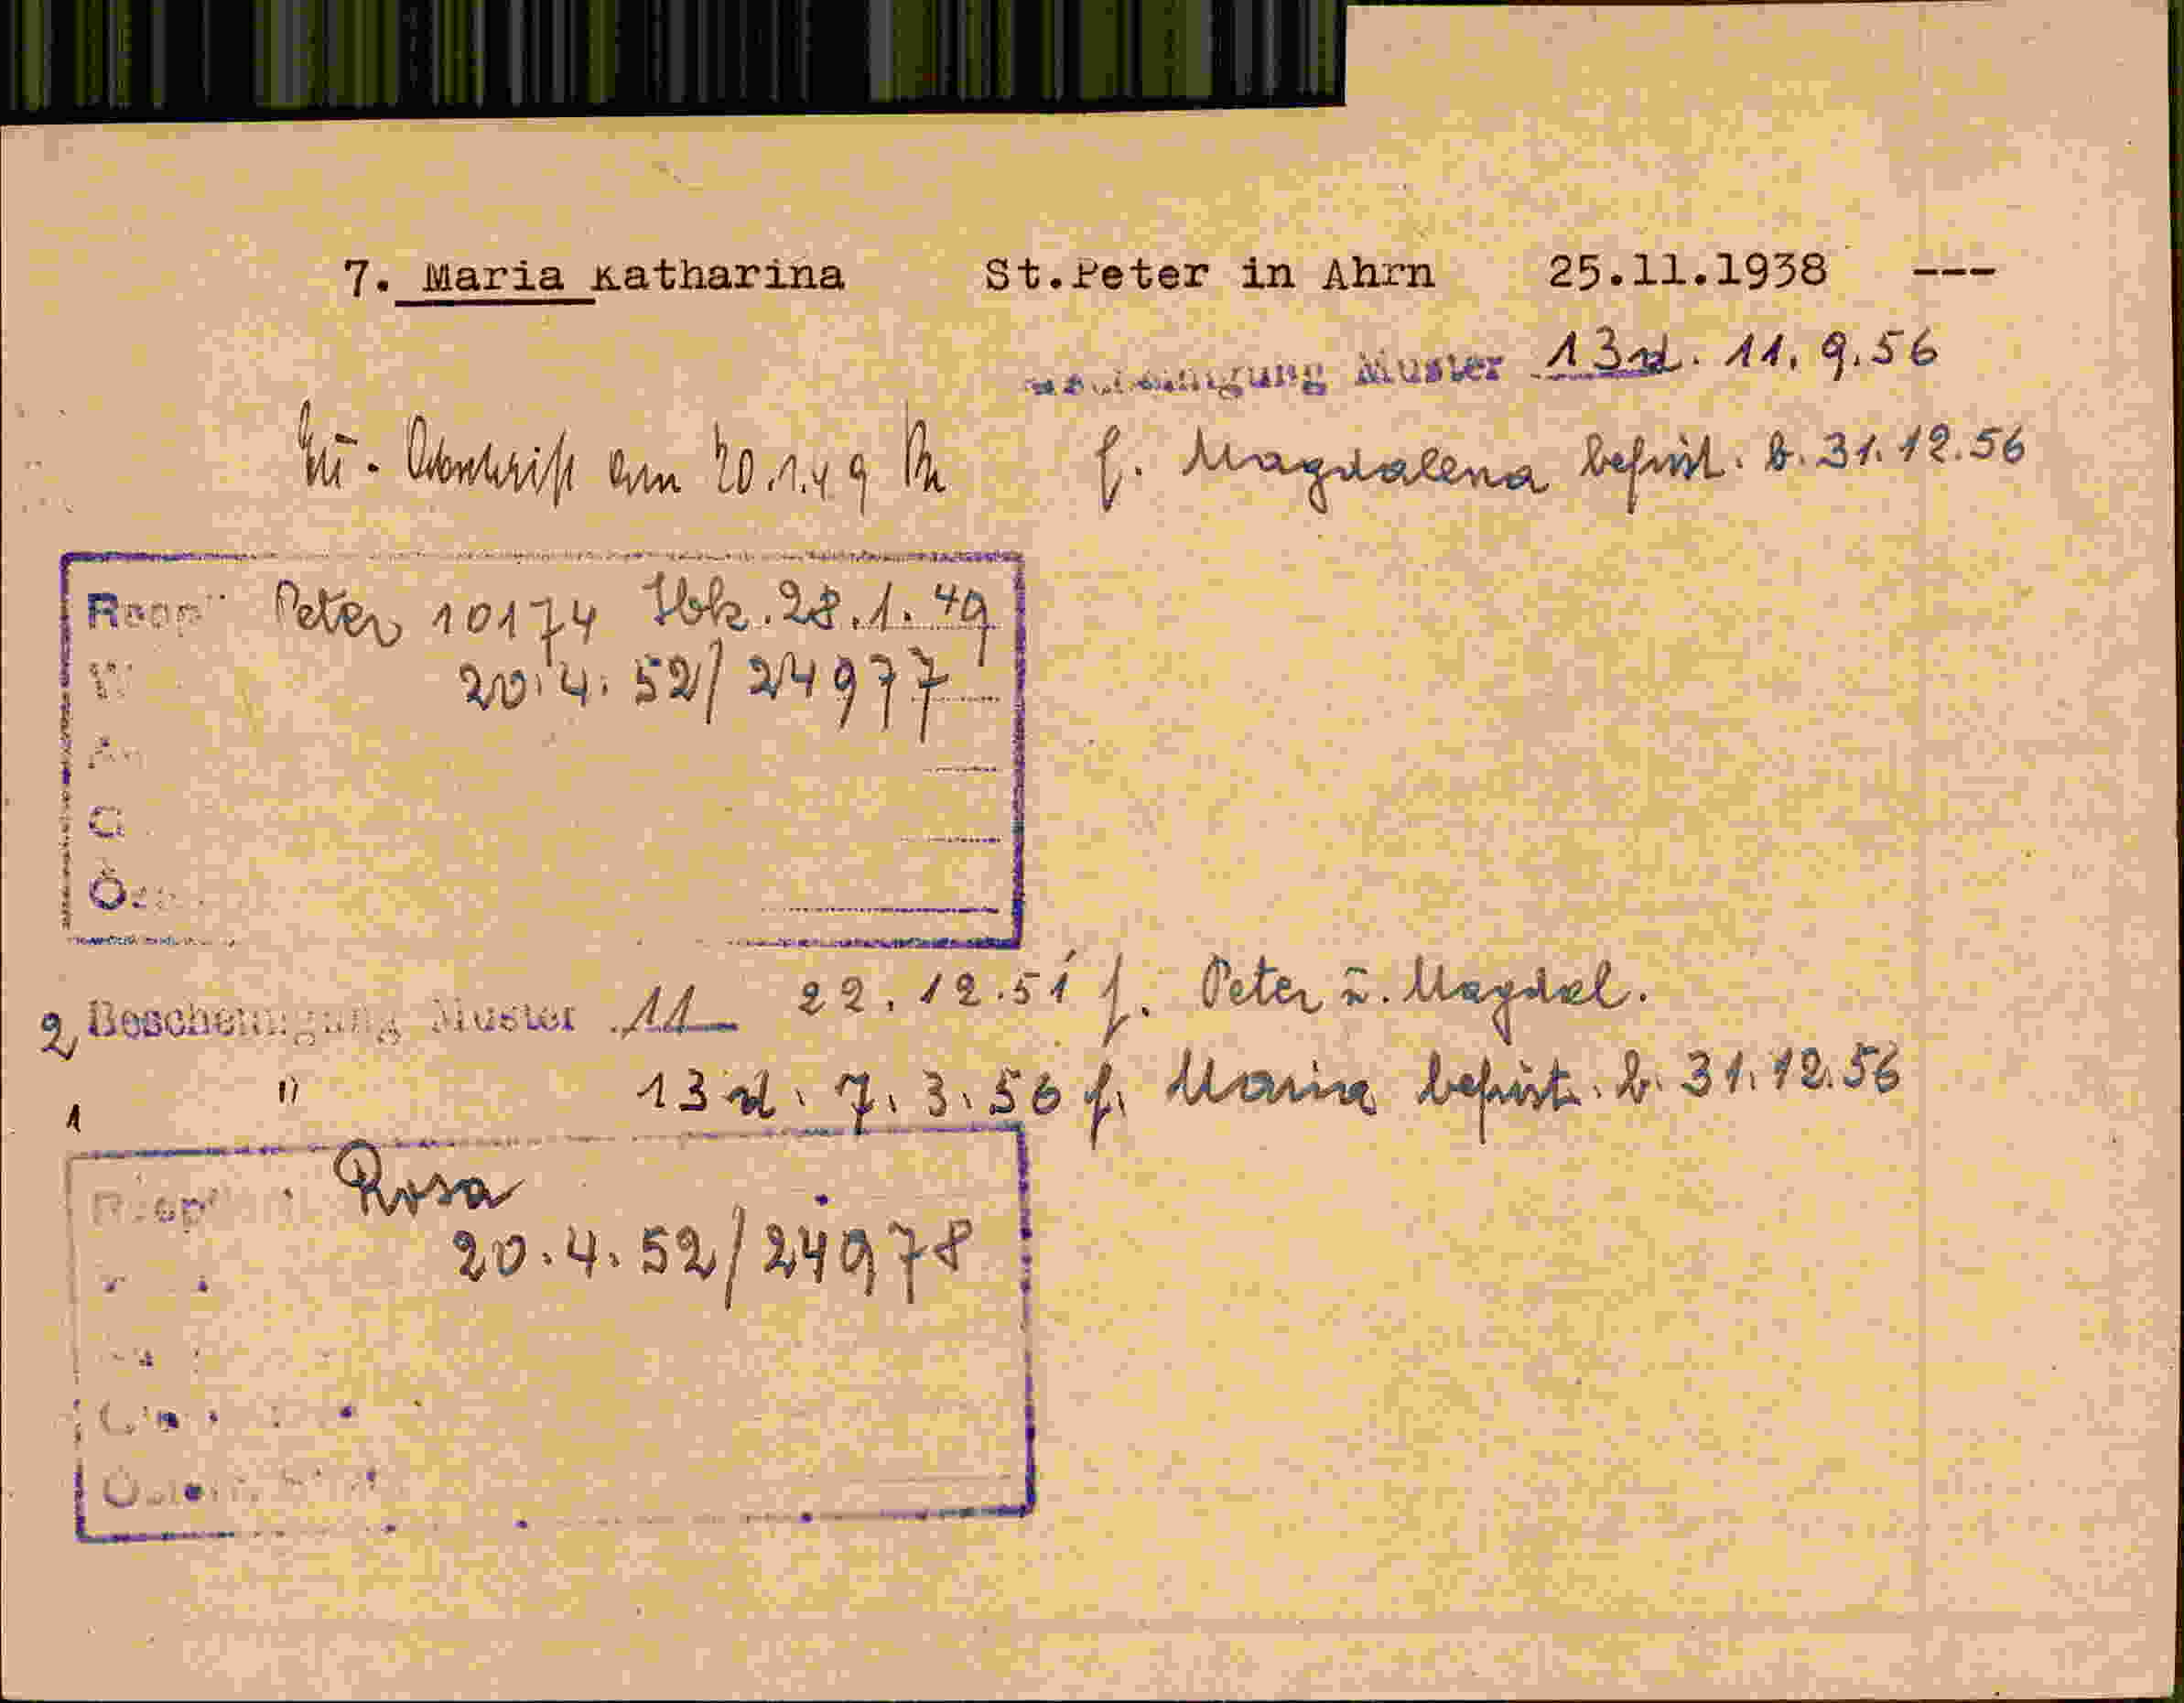 7. Maria Katharina St.Peter in Ahrn 25.11.1938 ---
Muster 13d. 11.9.56
Abschrift am 20.1.49 f. Magdalena befrist. b. 31.12.56
Peter 10174 Ibk. 28.1.49
20.4.52/24977
2 Bescheinigung Muster 11 22.12.51 f. Peter u. Magdal.
1 " 13d. 7.3.56 f. Maria befrist. b. 31.12.56
Rosa
20.4.52/24978